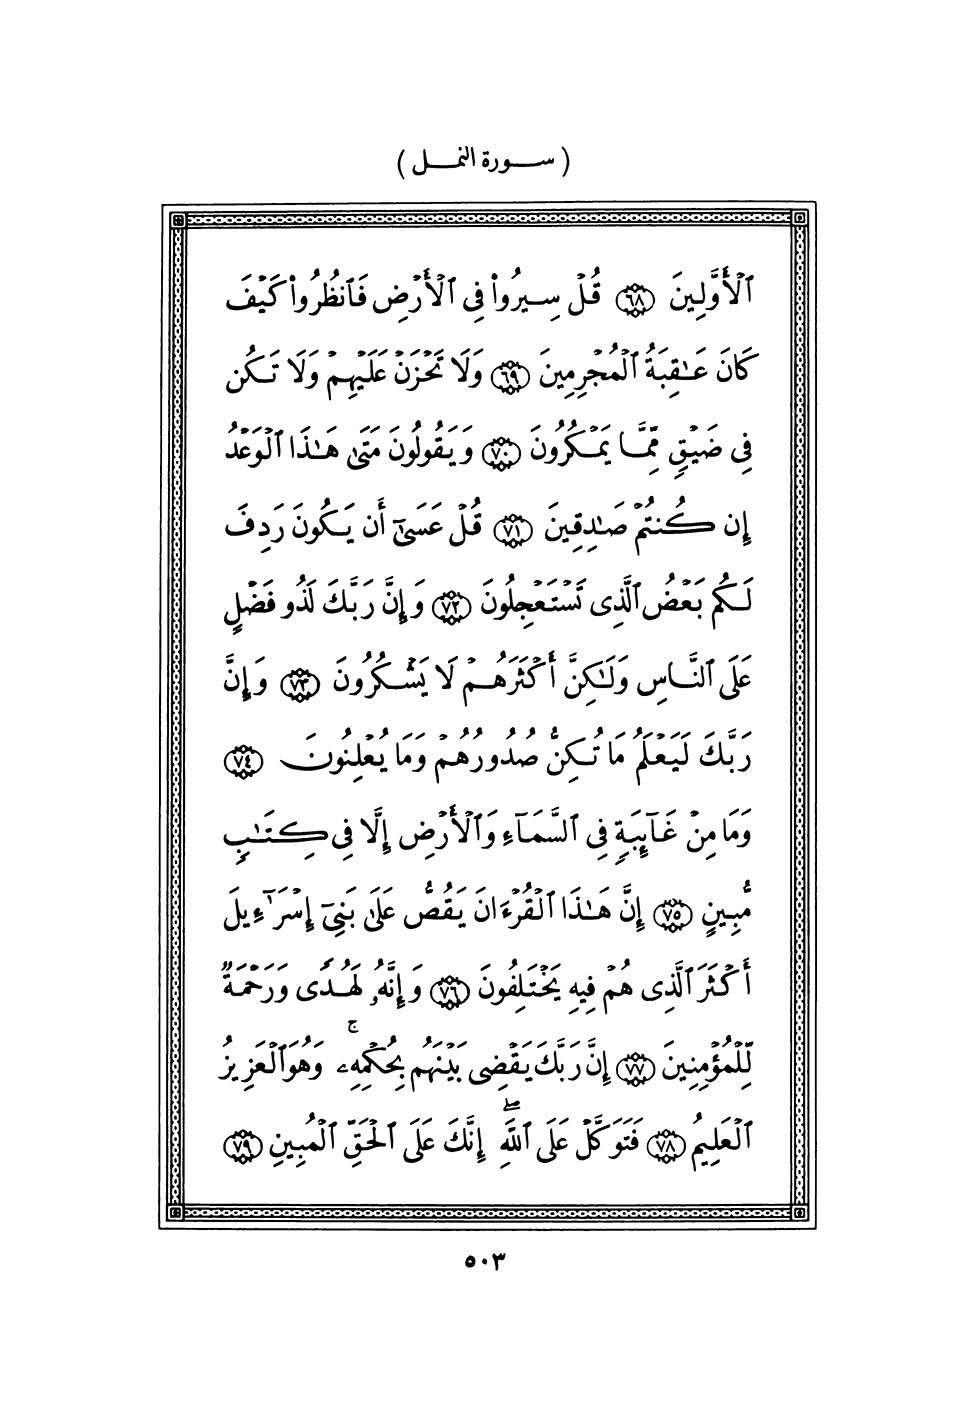 ( سورة النمل )
ٱلْأَوَّلِينَ ﴿٦٨﴾ قُلْ سِيرُوا۟ فِى ٱلْأَرْضِ فَٱنظُرُوا۟ كَيْفَ
كَانَ عَـٰقِبَةُ ٱلْمُجْرِمِينَ ﴿٦٩﴾ وَلَا تَحْزَنْ عَلَيْهِمْ وَلَا تَكُن
فِى ضَيْقٍ مِّمَّا يَمْكُرُونَ ﴿٧٠﴾ وَيَقُولُونَ مَتَىٰ هَـٰذَا ٱلْوَعْدُ
إِن كُنتُمْ صَـٰدِقِينَ ﴿٧١﴾ قُلْ عَسَىٰٓ أَن يَكُونَ رَدِفَ
لَكُم بَعْضُ ٱلَّذِى تَسْتَعْجِلُونَ ﴿٧٢﴾ وَإِنَّ رَبَّكَ لَذُو فَضْلٍ
عَلَى ٱلنَّاسِ وَلَـٰكِنَّ أَكْثَرَهُمْ لَا يَشْكُرُونَ ﴿٧٣﴾ وَإِنَّ
رَبَّكَ لَيَعْلَمُ مَا تُكِنُّ صُدُورُهُمْ وَمَا يُعْلِنُونَ ﴿٧٤﴾
وَمَا مِنْ غَآئِبَةٍ فِى ٱلسَّمَآءِ وَٱلْأَرْضِ إِلَّا فِى كِتَـٰبٍ
مُّبِينٍ ﴿٧٥﴾ إِنَّ هَـٰذَا ٱلْقُرْءَانَ يَقُصُّ عَلَىٰ بَنِىٓ إِسْرَٰٓءِيلَ
أَكْثَرَ ٱلَّذِى هُمْ فِيهِ يَخْتَلِفُونَ ﴿٧٦﴾ وَإِنَّهُۥ لَهُدًى وَرَحْمَةٌ
لِّلْمُؤْمِنِينَ ﴿٧٧﴾ إِنَّ رَبَّكَ يَقْضِى بَيْنَهُم بِحُكْمِهِۦ ۚ وَهُوَ ٱلْعَزِيزُ
ٱلْعَلِيمُ ﴿٧٨﴾ فَتَوَكَّلْ عَلَى ٱللَّهِ ۖ إِنَّكَ عَلَى ٱلْحَقِّ ٱلْمُبِينِ ﴿٧٩﴾
٥٠٣